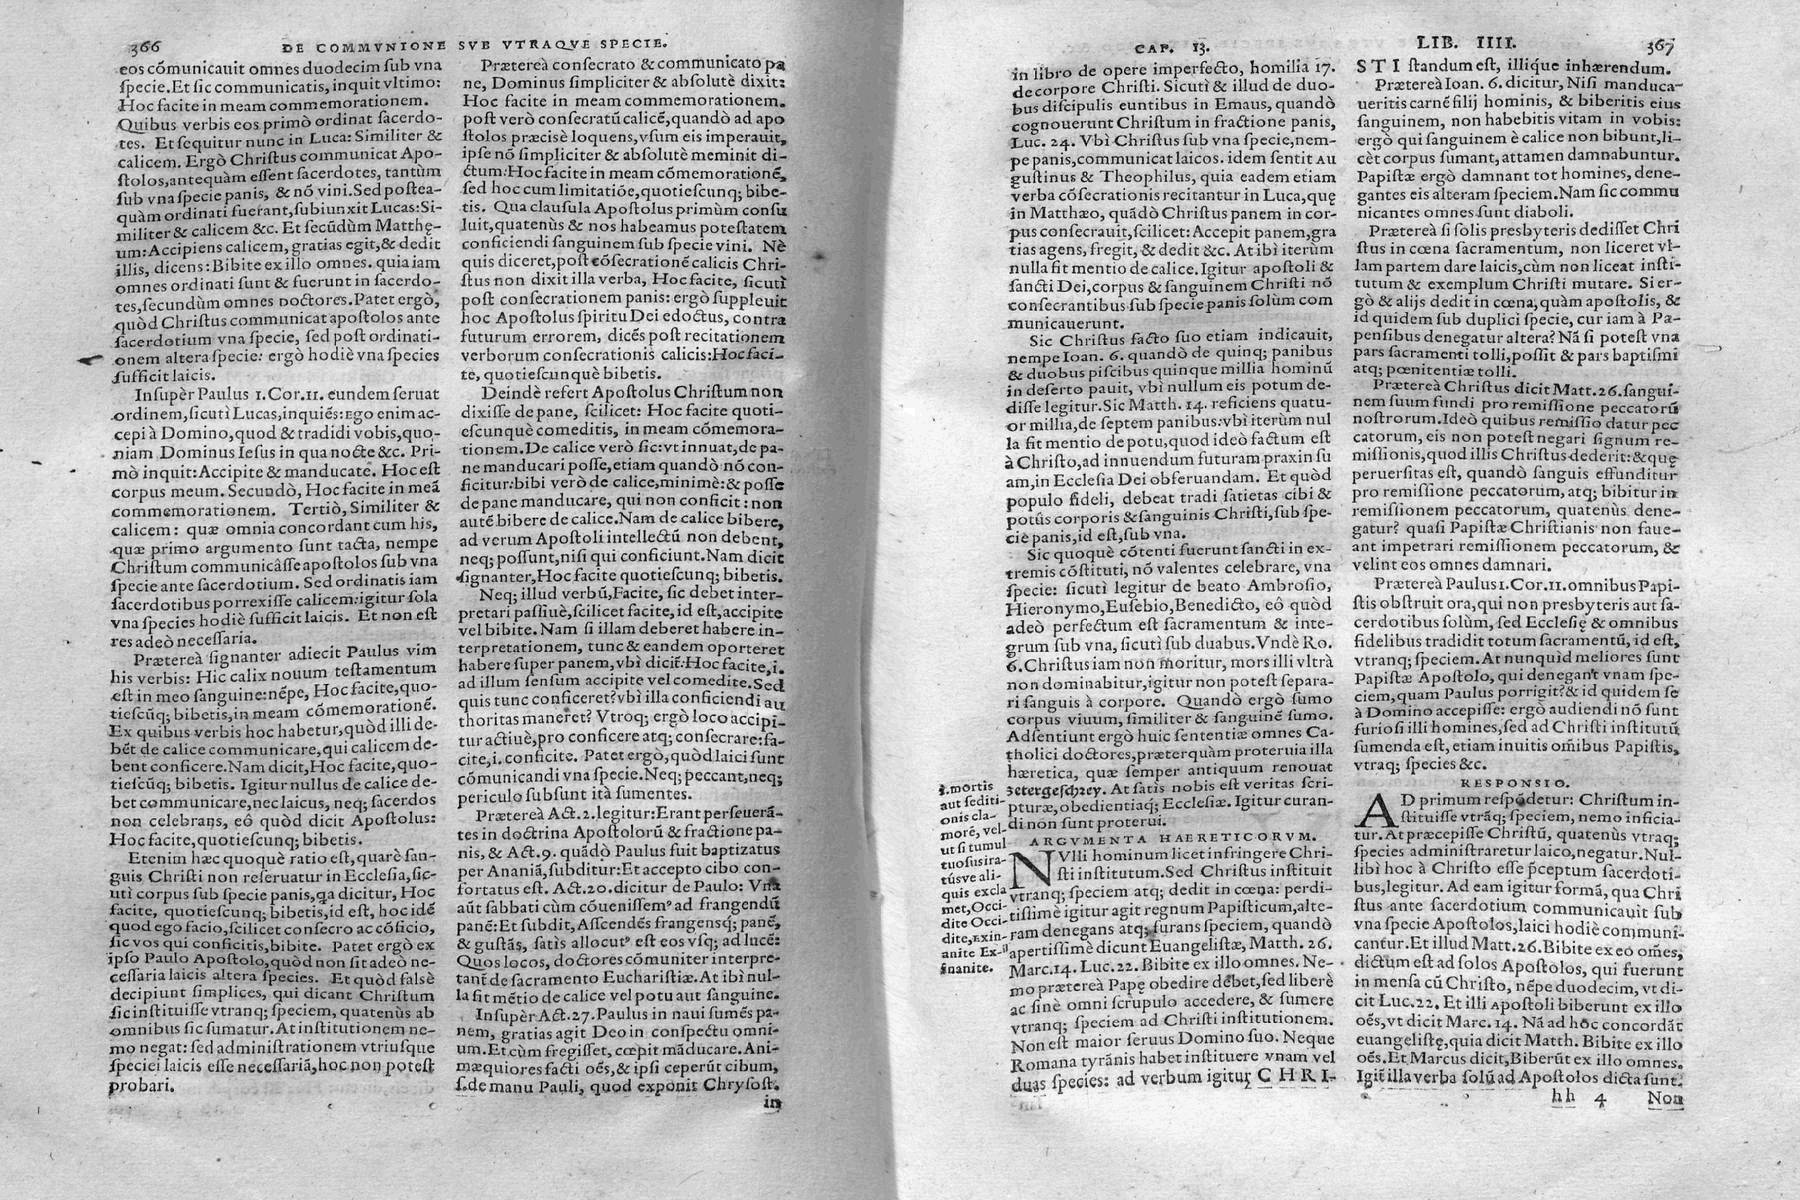 366
DE COMMVNIONE SVB VTRAQVE SPECIE.
eos cõmunicauit omnes duodecim ſub vna
ſpecie. Et ſic communicatis, inquit vltimo:
Hoc facite in meam commemorationem.
Quibus verbis eos primò ordinat ſacerdo-
tes. Et ſequitur nunc in Luca: Similiter &
calicem. Ergò Chriſtus communicat Apo-
ſtolos, antequàm eſſent ſacerdotes, tantùm
ſub vna ſpecie panis, & nõ vini. Sed poſtea-
quàm ordinati fuerant, ſubiunxit Lucas: Si-
militer & calicem &c. Et ſecũdùm Matthę-
um: Accipiens calicem, gratias egit, & dedit
illis, dicens: Bibite ex illo omnes. quia iam
omnes ordinati ſunt & fuerunt in ſacerdo-
tes, ſecundùm omnes Doctores. Patet ergò,
quòd Chriſtus communicat apoſtolos ante
ſacerdotium vna ſpecie, ſed poſt ordinati-
onem altera ſpecie: ergò hodiè vna ſpecies
ſufficit laicis.
Inſupèr Paulus 1. Cor. 11. eundem ſeruat
ordinem, ſicutì Lucas, inquiẽs: Ego enim ac-
cepi à Domino, quod & tradidi vobis, quo-
niam Dominus Ieſus in qua nocte &c. Pri-
mò inquit: Accipite & manducate. Hoc eſt
corpus meum. Secundò, Hoc facite in meã
commemorationem. Tertiò, Similiter &
calicem: quæ omnia concordant cum his,
quæ primo argumento ſunt tacta, nempe
Chriſtum communicâſſe apoſtolos ſub vna
ſpecie ante ſacerdotium. Sed ordinatis iam
ſacerdotibus porrexiſſe calicem: igitur ſola
vna ſpecies hodiè ſufficit laicis. Et non eſt
res adeò neceſſaria.
Prætereà ſignanter adiecit Paulus vim
his verbis: Hic calix nouum teſtamentum
eſt in meo ſanguine: nẽpe, Hoc facite, quo-
tieſcũq; bibetis, in meam cõmemorationẽ.
Ex quibus verbis hoc habetur, quòd illi de-
bẽt de calice communicare, qui calicem de-
bent conficere. Nam dicit, Hoc facite, quo-
tieſcũq; bibetis. Igitur nullus de calice de-
bet communicare, nec laicus, neq; ſacerdos
non celebrans, eô quòd dicit Apoſtolus:
Hoc facite, quotieſcunq; bibetis.
Etenim hæc quoquè ratio eſt, quarè ſan-
guis Chriſti non reſeruatur in Eccleſia, ſic-
utì corpus ſub ſpecie panis, qa dicitur, Hoc
facite, quotieſcunq; bibetis, id eſt, hoc idẽ
quod ego facio, ſcilicet conſecro ac cõficio,
ſic vos qui conficitis, bibite. Patet ergò ex
ipſo Paulo Apoſtolo, quòd non ſit adeò ne-
ceſſaria laicis altera ſpecies. Et quòd falsè
decipiunt ſimplices, qui dicant Chriſtum
ſic inſtituiſſe vtranq; ſpeciem, quatenùs ab
omnibus ſic ſumatur. At inſtitutionem ne-
mo negat: ſed adminiſtrationem vtriuſque
ſpeciei laicis eſſe neceſſariã, hoc non poteſt
probari.
Prætereà conſecrato & communicato pa
ne, Dominus ſimpliciter & abſolutè dixit:
Hoc facite in meam commemorationem.
poſt verò conſecratũ calicẽ, quandò ad apo
ſtolos præcisè loquens, vſum eis imperauit,
ipſe nõ ſimpliciter & abſolutè meminit di-
ctum: Hoc facite in meam cõmemorationẽ,
ſed hoc cum limitatiõe, quotieſcunq; bibe-
tis. Qua clauſula Apoſtolus primùm conſu
luit, quatenùs & nos habeamus poteſtatem
conficiendi ſanguinem ſub ſpecie vini. Nè
quis diceret, poſt cõſecrationẽ calicis Chri-
ſtus non dixit illa verba, Hoc facite, ſicutì
poſt conſecrationem panis: ergò ſuppleuit
hoc Apoſtolus ſpiritu Dei edoctus, contra
futurum errorem, dicẽs poſt recitationem
verborum conſecrationis calicis: Hoc faci-
te, quotieſcunquè bibetis.
Deindè refert Apoſtolus Chriſtum non
dixiſſe de pane, ſcilicet: Hoc facite quoti-
eſcunquè comeditis, in meam cõmemora-
tionem. De calice verò ſic: vt innuat, de pa-
ne manducari poſſe, etiam quandò nõ con-
ficitur: bibi verò de calice, minimè: & poſſe
de pane manducare, qui non conficit: non
autẽ bibere de calice. Nam de calice bibere,
ad verum Apoſtoli intellectũ non debent,
neq; poſſunt, niſi qui conficiunt. Nam dicit
ſignanter, Hoc facite quotieſcunq; bibetis.
Neq; illud verbũ, Facite, ſic debet inter-
pretari paſſiuè, ſcilicet facite, id eſt, accipite
vel bibite. Nam ſi illam deberet habere in-
terpretationem, tunc & eandem oporteret
habere ſuper panem, vbì dicit: Hoc facite, i.
ad illum ſenſum accipite vel comedite. Sed
quis tunc conficeret? vbì illa conficiendi au
thoritas maneret? Vtroq; ergò loco accipi-
tur actiuè, pro conficere atq; conſecrare: fa-
cite, i. conficite. Patet ergò, quòd laici ſunt
cõmunicandi vna ſpecie. Neq; peccant, neq;
periculo ſubſunt ità ſumentes.
Prætereà Act. 2. legitur: Erant perſeuerã-
tes in doctrina Apoſtolorũ & fractione pa-
nis, & Act. 9. quãdò Paulus fuit baptizatus
per Ananiã, ſubditur: Et accepto cibo con-
fortatus eſt. Act. 20. dicitur de Paulo: Vna
aũt ſabbati cùm cõueniſſemꝰ ad frangendũ
panẽ: Et ſubdit, Aſcendẽs frangensq; panẽ,
& guſtãs, ſatìs allocutꝰ eſt eos vſq; ad lucẽ:
Quos locos, doctores cõmuniter interpre-
tant̃ de ſacramento Euchariſtiæ. At ibì nul-
la fit mẽtio de calice vel potu aut ſanguine.
Inſupèr Act. 27. Paulus in naui ſumẽs pa-
nem, gratias agit Deo in conſpectu omni-
um. Et cùm fregiſſet, cœpit mãducare. Ani-
mæquiores facti oẽs, & ipſi ceperũt cibum,
ſ. de manu Pauli, quod exponit Chryſoſt.
in
CAP. 13.
LIB. IIII.
367
in libro de opere imperfecto, homilia 17.
de corpore Chriſti. Sicutì & illud de duo-
bus diſcipulis euntibus in Emaus, quandò
cognouerunt Chriſtum in fractione panis,
Luc. 24. Vbì Chriſtus ſub vna ſpecie, nem-
pe panis, communicat laicos. idem ſentit Au
guſtinus & Theophilus, quia eadem etiam
verba cõſecrationis recitantur in Luca, quę
in Matthæo, quãdò Chriſtus panem in cor-
pus conſecrauit, ſcilicet: Accepit panem, gra
tias agens, fregit, & dedit &c. At ibì iterùm
nulla fit mentio de calice. Igitur apoſtoli &
ſancti Dei, corpus & ſanguinem Chriſti nõ
conſecrantibus ſub ſpecie panis ſolùm com
municauerunt.
Sic Chriſtus facto ſuo etiam indicauit,
nempe Ioan. 6. quandò de quinq; panibus
& duobus piſcibus quinque millia hominũ
in deſerto pauit, vbì nullum eis potum de-
diſſe legitur. Sic Matth. 14. reficiens quatu-
or millia, de ſeptem panibus: vbì iterùm nul
la fit mentio de potu, quod ideò factum eſt
à Chriſto, ad innuendum futuram praxin ſu
am, in Eccleſia Dei obſeruandam. Et quòd
populo fideli, debeat tradi ſatietas cibi &
potûs corporis & ſanguinis Chriſti, ſub ſpe-
cie panis, id eſt, ſub vna.
Sic quoquè cõtenti fuerunt ſancti in ex-
tremis cõſtituti, nõ valentes celebrare, vna
ſpecie: ſicutì legitur de beato Ambroſio,
Hieronymo, Euſebio, Benedicto, eô quòd
adeò perfectum eſt ſacramentum & inte-
grum ſub vna, ſicutì ſub duabus. Vndè Ro.
6. Chriſtus iam non moritur, mors illi vltrà
non dominabitur, igitur non poteſt ſepara-
ri ſanguis à corpore. Quandò ergò ſumo
corpus viuum, ſimiliter & ſanguinẽ ſumo.
Adſentiunt ergò huic ſententiæ omnes Ca-
tholici doctores, præterquàm proteruia illa
hæretica, quæ ſemper antiquum renouat
zetergeſchrey. At ſatìs nobis eſt veritas ſcri-
pturæ, obedientiaq; Eccleſiæ. Igitur curan-
di non ſunt proterui.
i. mortis
aut ſediti-
onis cla-
morẽ, vel-
ut ſi tumul
tuoſus ira-
túsve ali-
quis excla
met, Occi-
dite Occi-
dite, Exin-
anite Ex-
inanite.
ARGVMENTA HAERETICORVM.
NVlli hominum licet infringere Chri-
ſti inſtitutum. Sed Chriſtus inſtituit
vtranq; ſpeciem atq; dedit in cœna: perdi-
tiſſimè igitur agit regnum Papiſticum, alte-
ram denegans atq; furans ſpeciem, quandò
apertiſſimè dicunt Euangeliſtæ, Matth. 26.
Marc. 14. Luc. 22. Bibite ex illo omnes. Ne-
mo prætereà Papę obedire debet, ſed liberè
ac ſinè omni ſcrupulo accedere, & ſumere
vtranq; ſpeciem ad Chriſti inſtitutionem.
Non eſt maior ſeruus Domino ſuo. Neque
Romana tyrãnis habet inſtituere vnam vel
duas ſpecies: ad verbum igitur CHRI-
STI ſtandum eſt, illique inhærendum.
Prætereà Ioan. 6. dicitur, Niſi manduca-
ueritis carnẽ filij hominis, & biberitis eius
ſanguinem, non habebitis vitam in vobis:
ergò qui ſanguinem è calice non bibunt, li-
cèt corpus ſumant, attamen damnabuntur.
Papiſtæ ergò damnant tot homines, dene-
gantes eis alteram ſpeciem. Nam ſic commu
nicantes omnes ſunt diaboli.
Prætereà ſi ſolis presbyteris dediſſet Chri
ſtus in cœna ſacramentum, non liceret vl-
lam partem dare laicis, cùm non liceat inſti-
tutum & exemplum Chriſti mutare. Si er-
gò & alijs dedit in cœna, quàm apoſtolis, &
id quidem ſub duplici ſpecie, cur iam à Pa-
penſibus denegatur altera? Nã ſi poteſt vna
pars ſacramenti tolli, poſſit & pars baptiſmi
atq; pœnitentiæ tolli.
Prætereà Chriſtus dicit Matt. 26. ſangui-
nem ſuum fundi pro remiſſione peccatorũ
noſtrorum. Ideò quibus remiſſio datur pec
catorum, eis non poteſt negari ſignum re-
miſſionis, quod illis Chriſtus dederit: & quę
peruerſitas eſt, quandò ſanguis effunditur
pro remiſſione peccatorum, atq; bibitur in
remiſſionem peccatorum, quatenùs dene-
gatur? quaſi Papiſtæ Chriſtianis non faue-
ant impetrari remiſſionem peccatorum, &
velint eos omnes damnari.
Prætereà Paulus 1. Cor. 11. omnibus Papi-
ſtis obſtruit ora, qui non presbyteris aut ſa-
cerdotibus ſolùm, ſed Eccleſię & omnibus
fidelibus tradidit totum ſacramentũ, id eſt,
vtranq; ſpeciem. At nunquid meliores ſunt
Papiſtæ Apoſtolo, qui denegant vnam ſpe-
ciem, quam Paulus porrigit? & id quidem ſe
à Domino accepiſſe: ergò audiendi nõ ſunt
furioſi illi homines, ſed ad Chriſti inſtitutũ
ſumenda eſt, etiam inuitis om̃ibus Papiſtis,
vtraq; ſpecies &c.
RESPONSIO.
AD primum reſpõdetur: Chriſtum in-
ſtituiſſe vtrãq; ſpeciem, nemo inficia-
tur. At præcepiſſe Chriſtũ, quatenùs vtraq;
ſpecies adminiſtraretur laico, negatur. Nul-
libì hoc à Chriſto eſſe p̃ceptum ſacerdoti-
bus, legitur. Ad eam igitur formã, qua Chri
ſtus ante ſacerdotium communicauit ſub
vna ſpecie Apoſtolos, laici hodiè communi-
cantur. Et illud Matt. 26. Bibite ex eo om̃es,
dictum eſt ad ſolos Apoſtolos, qui fuerunt
in menſa cũ Chriſto, nẽpe duodecim, vt di-
cit Luc. 22. Et illi Apoſtoli biberunt ex illo
oẽs, vt dicit Marc. 14. Nã ad hoc concordãt
euangeliſtę, quia dicit Matth. Bibite ex illo
oẽs. Et Marcus dicit, Biberũt ex illo omnes.
Igit̃ illa verba ſolũ ad Apoſtolos dicta ſunt.
hh 4 Non